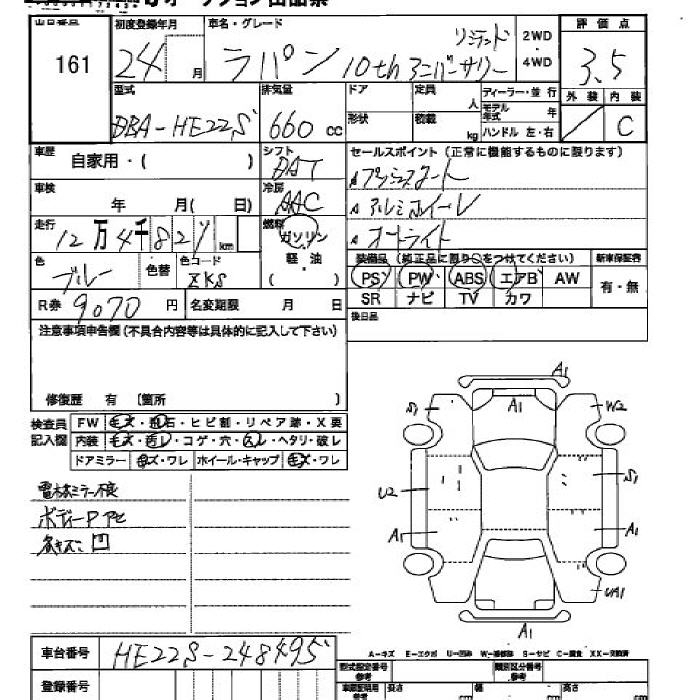 オークション出品票
出品番号 初度登録年月 車名・グレード 評価点
161 24 月 ラパン 10th アニバーサリー リミテッド 2WD ・ 4WD 3.5
型式 排気量 ドア 定員 人 ディーラー・並行 外装 内装
DBA-HE22S 660 cc 形状 積載 kg モデル年式 年 ハンドル 左・右 C
車歴 自家用・( ) シフト DAT セールスポイント(正常に機能するものに限ります)
車検 年 月( 日) 冷房 AAC プッシュスタート
走行 12万4千82 km 燃料 ガソリン アルミホイール
軽油 オートライト
色 ブルー 色替 色コード ZKS ( ) 装備品(純正品に限り○をつけてください) 新車保証書
PS PW ABS エアB AW 有・無
R券 9070 円 名変期限 月 日 SR ナビ TV カワ
注意事項申告欄(不具合内容等は具体的に記入して下さい) 後日品
修復歴 有 〔箇所 〕
検査員記入欄 FW キズ・飛石・ヒビ割・リペア跡・X要
内装 キズ・汚レ・コゲ・穴・スレ・ヘタリ・破レ
ドアミラー キズ・ワレ ホイール・キャップ キズ・ワレ
電格ミラー不良
ボディー
キズ 凹
A1
A1
S1 W2
U2 S1
A1 A1
UA1
A1
A-キズ E-エクボ U-凹み W-補修跡 S-サビ C-腐食 XX-交換済
車台番号 HE22S-248495 型式指定番号 参考 類別区分番号 参考
登録番号 車庫証明用 参考 長さ cm 幅 cm 高さ cm